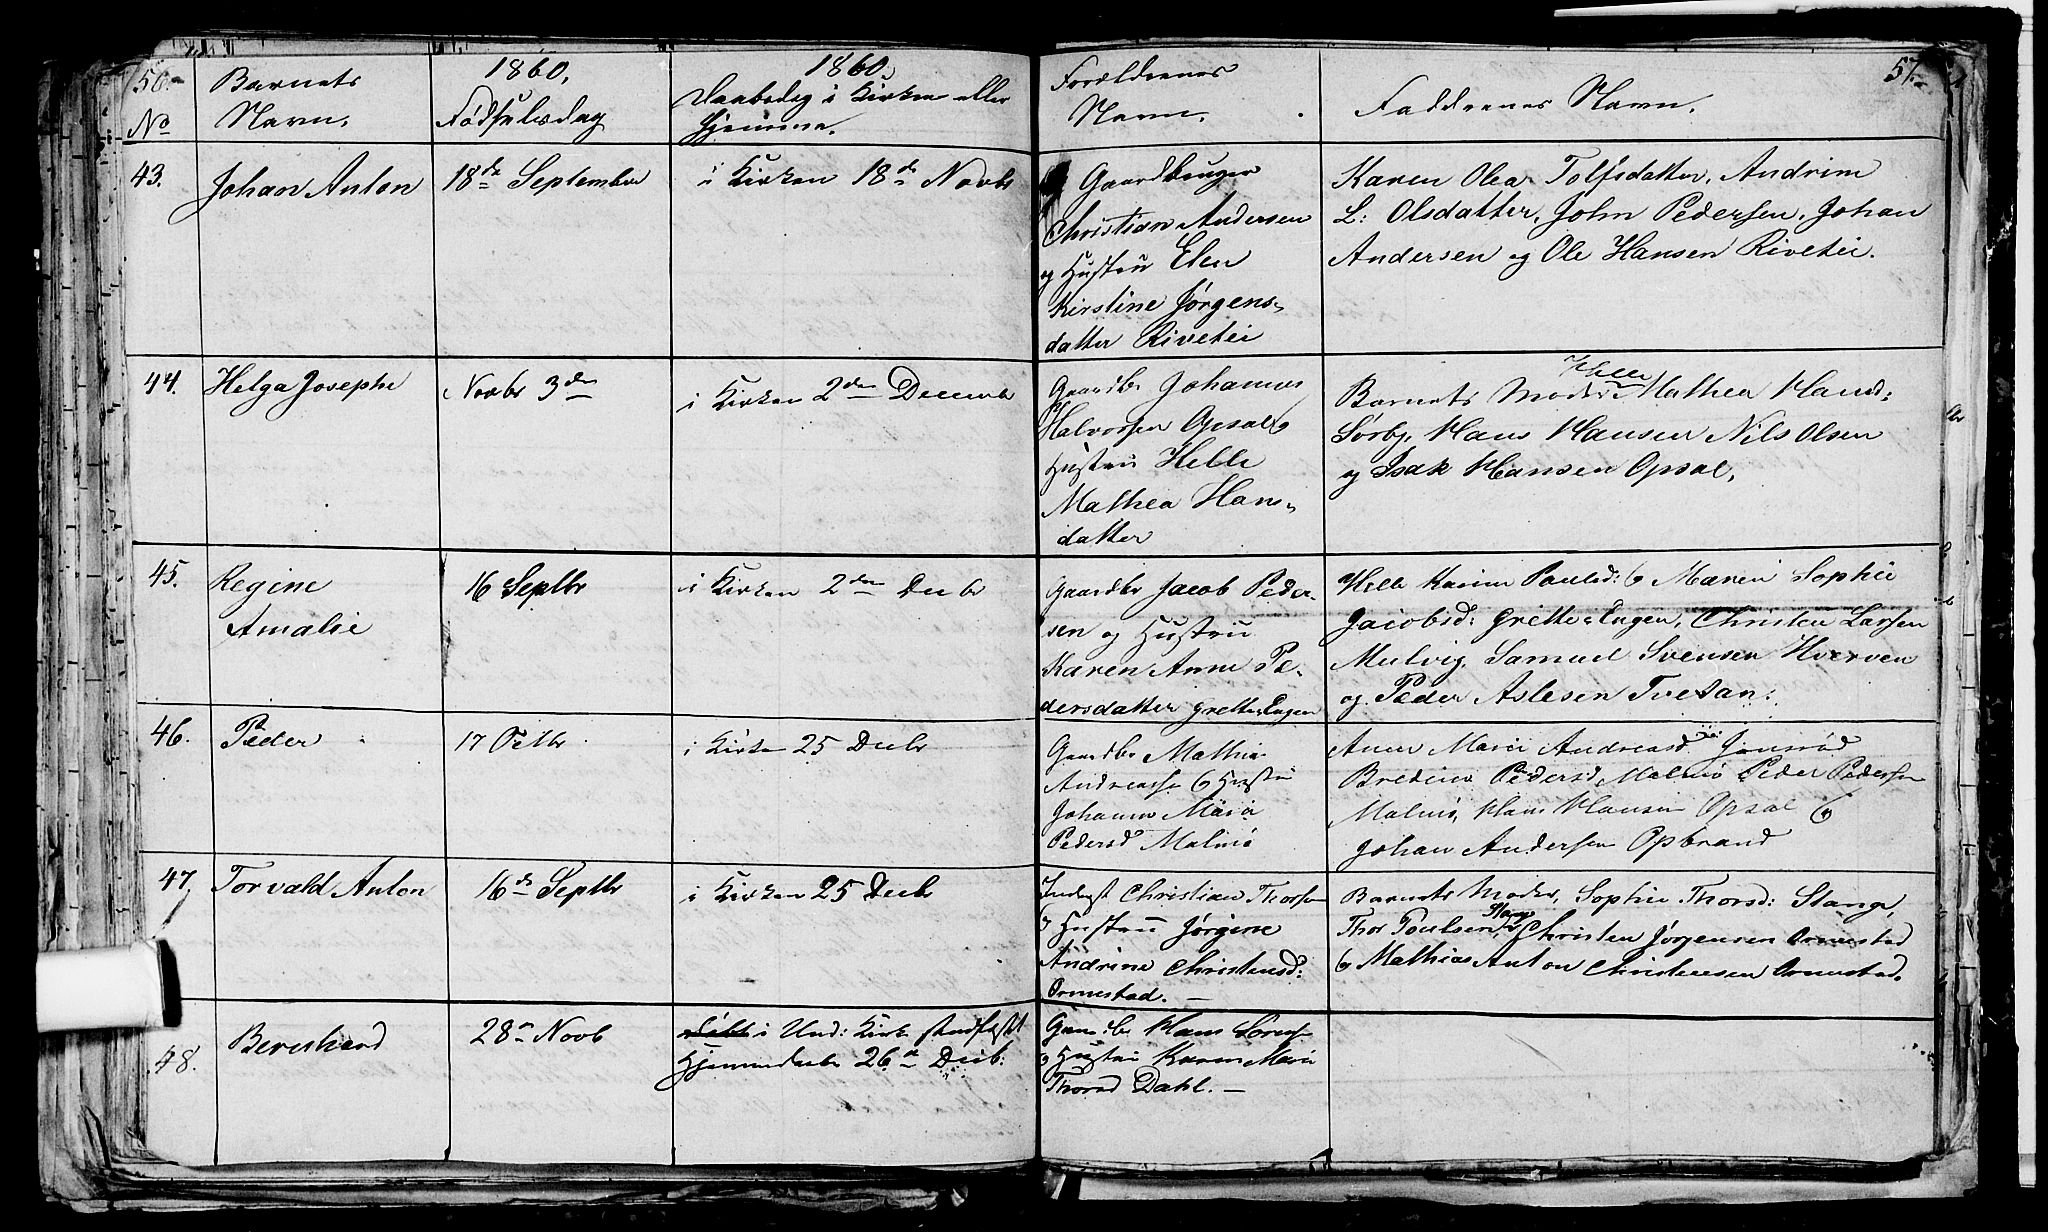 56
No
Barnets
Navn.
1860,
Fødselsdag
1860,
Daabsdag i Kirken eller
Hjemme.
Forældrenes
Navn.
Faddrenes Navn.
57
43.
Johan Anton
18de September
i Kirken 18de Novbr
Gaardbruger
Christian Andersen
og Hustru Elen
Kirstine Jørgens-
datter Rivetei
Karen Olea Tolfsdatter, Andrine
L: Olsdatter, John Pedersen, Johan
Andersen og Ole Hansen Rivetei.
44.
Helga Josephe
Novbr 3den
i Kirken 2den Decembr
Gaardbr Johannes
Halvorsen Opsal og
Hustru Helle
Mathea Hans-
datter
Barnets Moder Helle Mathea Hansd:
Sørby, Hans Hansen Nils Olsen
og Isak Hansen Opsal.
45.
Regine
Amalie
16 Septbr
i Kirken 2den Decbr
Gaardbr Jacob Peder-
sen og Hustru
Karen Anne Pe-
dersdatter Grette-Engen
Helle Karine Paulsd: og Maren Sophie
Jacobsd: Grette-Engen, Christen Larsen
Mulvig, Samuel Svensen Hverven
og Peder Aslesen Tvetan.
46.
Peder
17 Octbr
i Kirken 25 Decbr
Gaardbr Mathis
Andreassen og Hustru
Johanne Marie
Pedersd Malmø
Anne Marie Andreasd Jonsrød
Bredine Pedersd Malmø Peder Pedersen
Malmø, Hans Hansen Opsal og
Johan Andersen Opbrand
47.
Torvald Anton
16de Septbr
i Kirken 25 Decbr
Inderst Christian Thorsen
og Hustru Jørgine
Andrine Christensd:
Ormestad.
Barnets Moder, Sophie Thorsd: Stange,
Thor Poulsen Stange, Christen Jørgensen Ormestad
og Mathias Anton Christensen Ormestad.
48.
Bernhard
28de Novb
i Und: Kirke stadfæstet
Hjemmedaab 26de Decb:
Gaardbr Hans Sørensen
og Hustru Karen Marie
Thorsd Dahl.